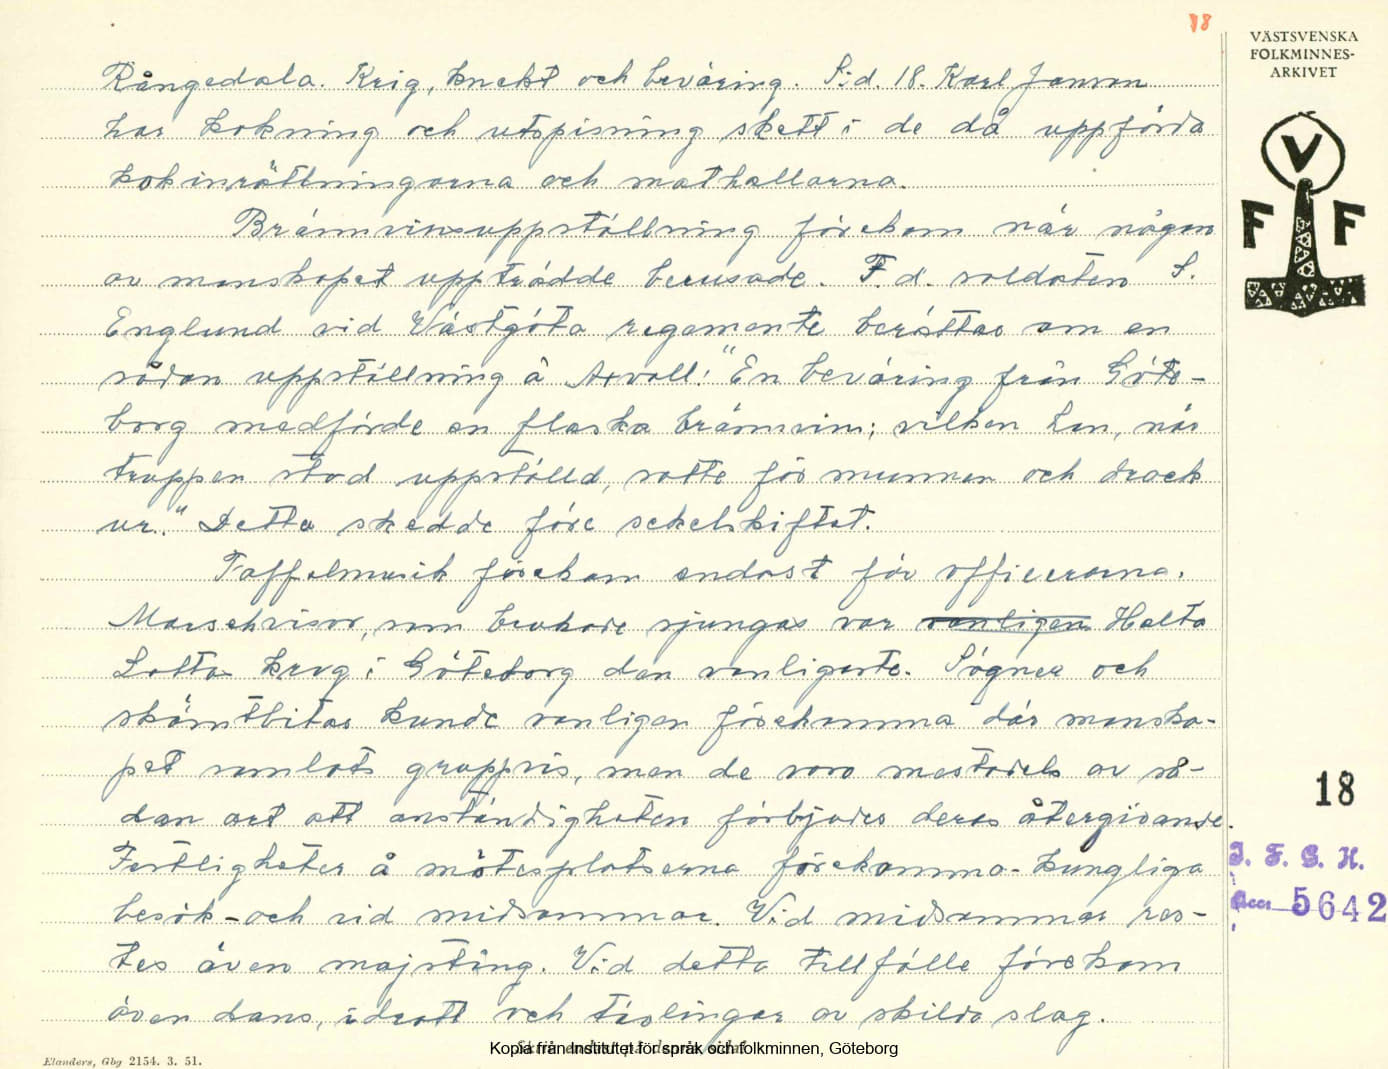 18
Rångedala. Krig, knekt och beväring. Sid. 18. Karl Janson
har kokning och utspisning skett i de då uppförda
kokinrättningarna och mathallarna.
Brännvinsuppställning förekom när någon
av manskapet uppträdde berusade. F.d. soldaten S.
Englund vid Västgöta regemente berättas om en
sådan uppställning å Axvall: "En beväring från Göte-
borg medförde en flaska brännvin; vilken han, när
truppen stod uppställd, satte för munnen och drack
ur." Detta skedde före sekelskiftet.
Taffelmusik förekom endast för officerarna.
Marschvisor, som brukade sjungas var vanligen Halta
Lotta krog i Göteborg den vanligaste. Sägner och
skämtbitar kunde vanligen förekomma där manska-
pet samlats gruppvis, men de voro mestadels av så-
dan art att anständigheten förbjudes deras återgivande.
Festligheter å mötesplatserna förekommo - kungliga
besök - och vid midsommar. Vid midsommar res-
tes även majstång. Vid detta tillfälle förekom
även dans, idrott och tävlingar av skilda slag.
VÄSTSVENSKA
FOLKMINNES-
ARKIVET
V
F F
18
I. F. G. H.
Acc. 5642
Elanders, Gbg 2154. 3. 51.
Kopia från Institutet för språk och folkminnen, Göteborg